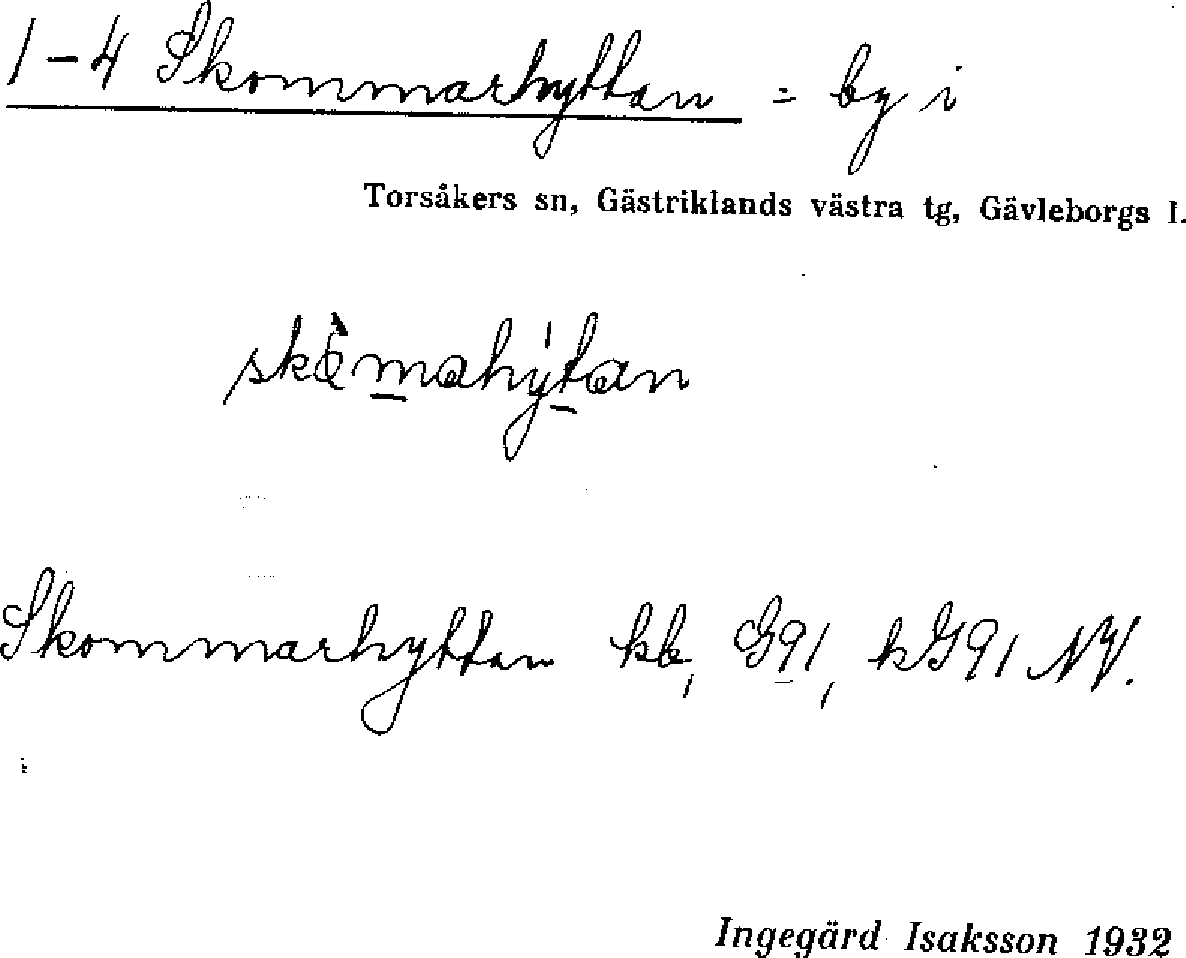 1-4 Skommarhyttan = by i
Torsåkers sn, Gästriklands västra tg, Gävleborgs l.
Skommarhyttan kb, G91, hJ91 NV.
Ingegärd Isaksson 1932